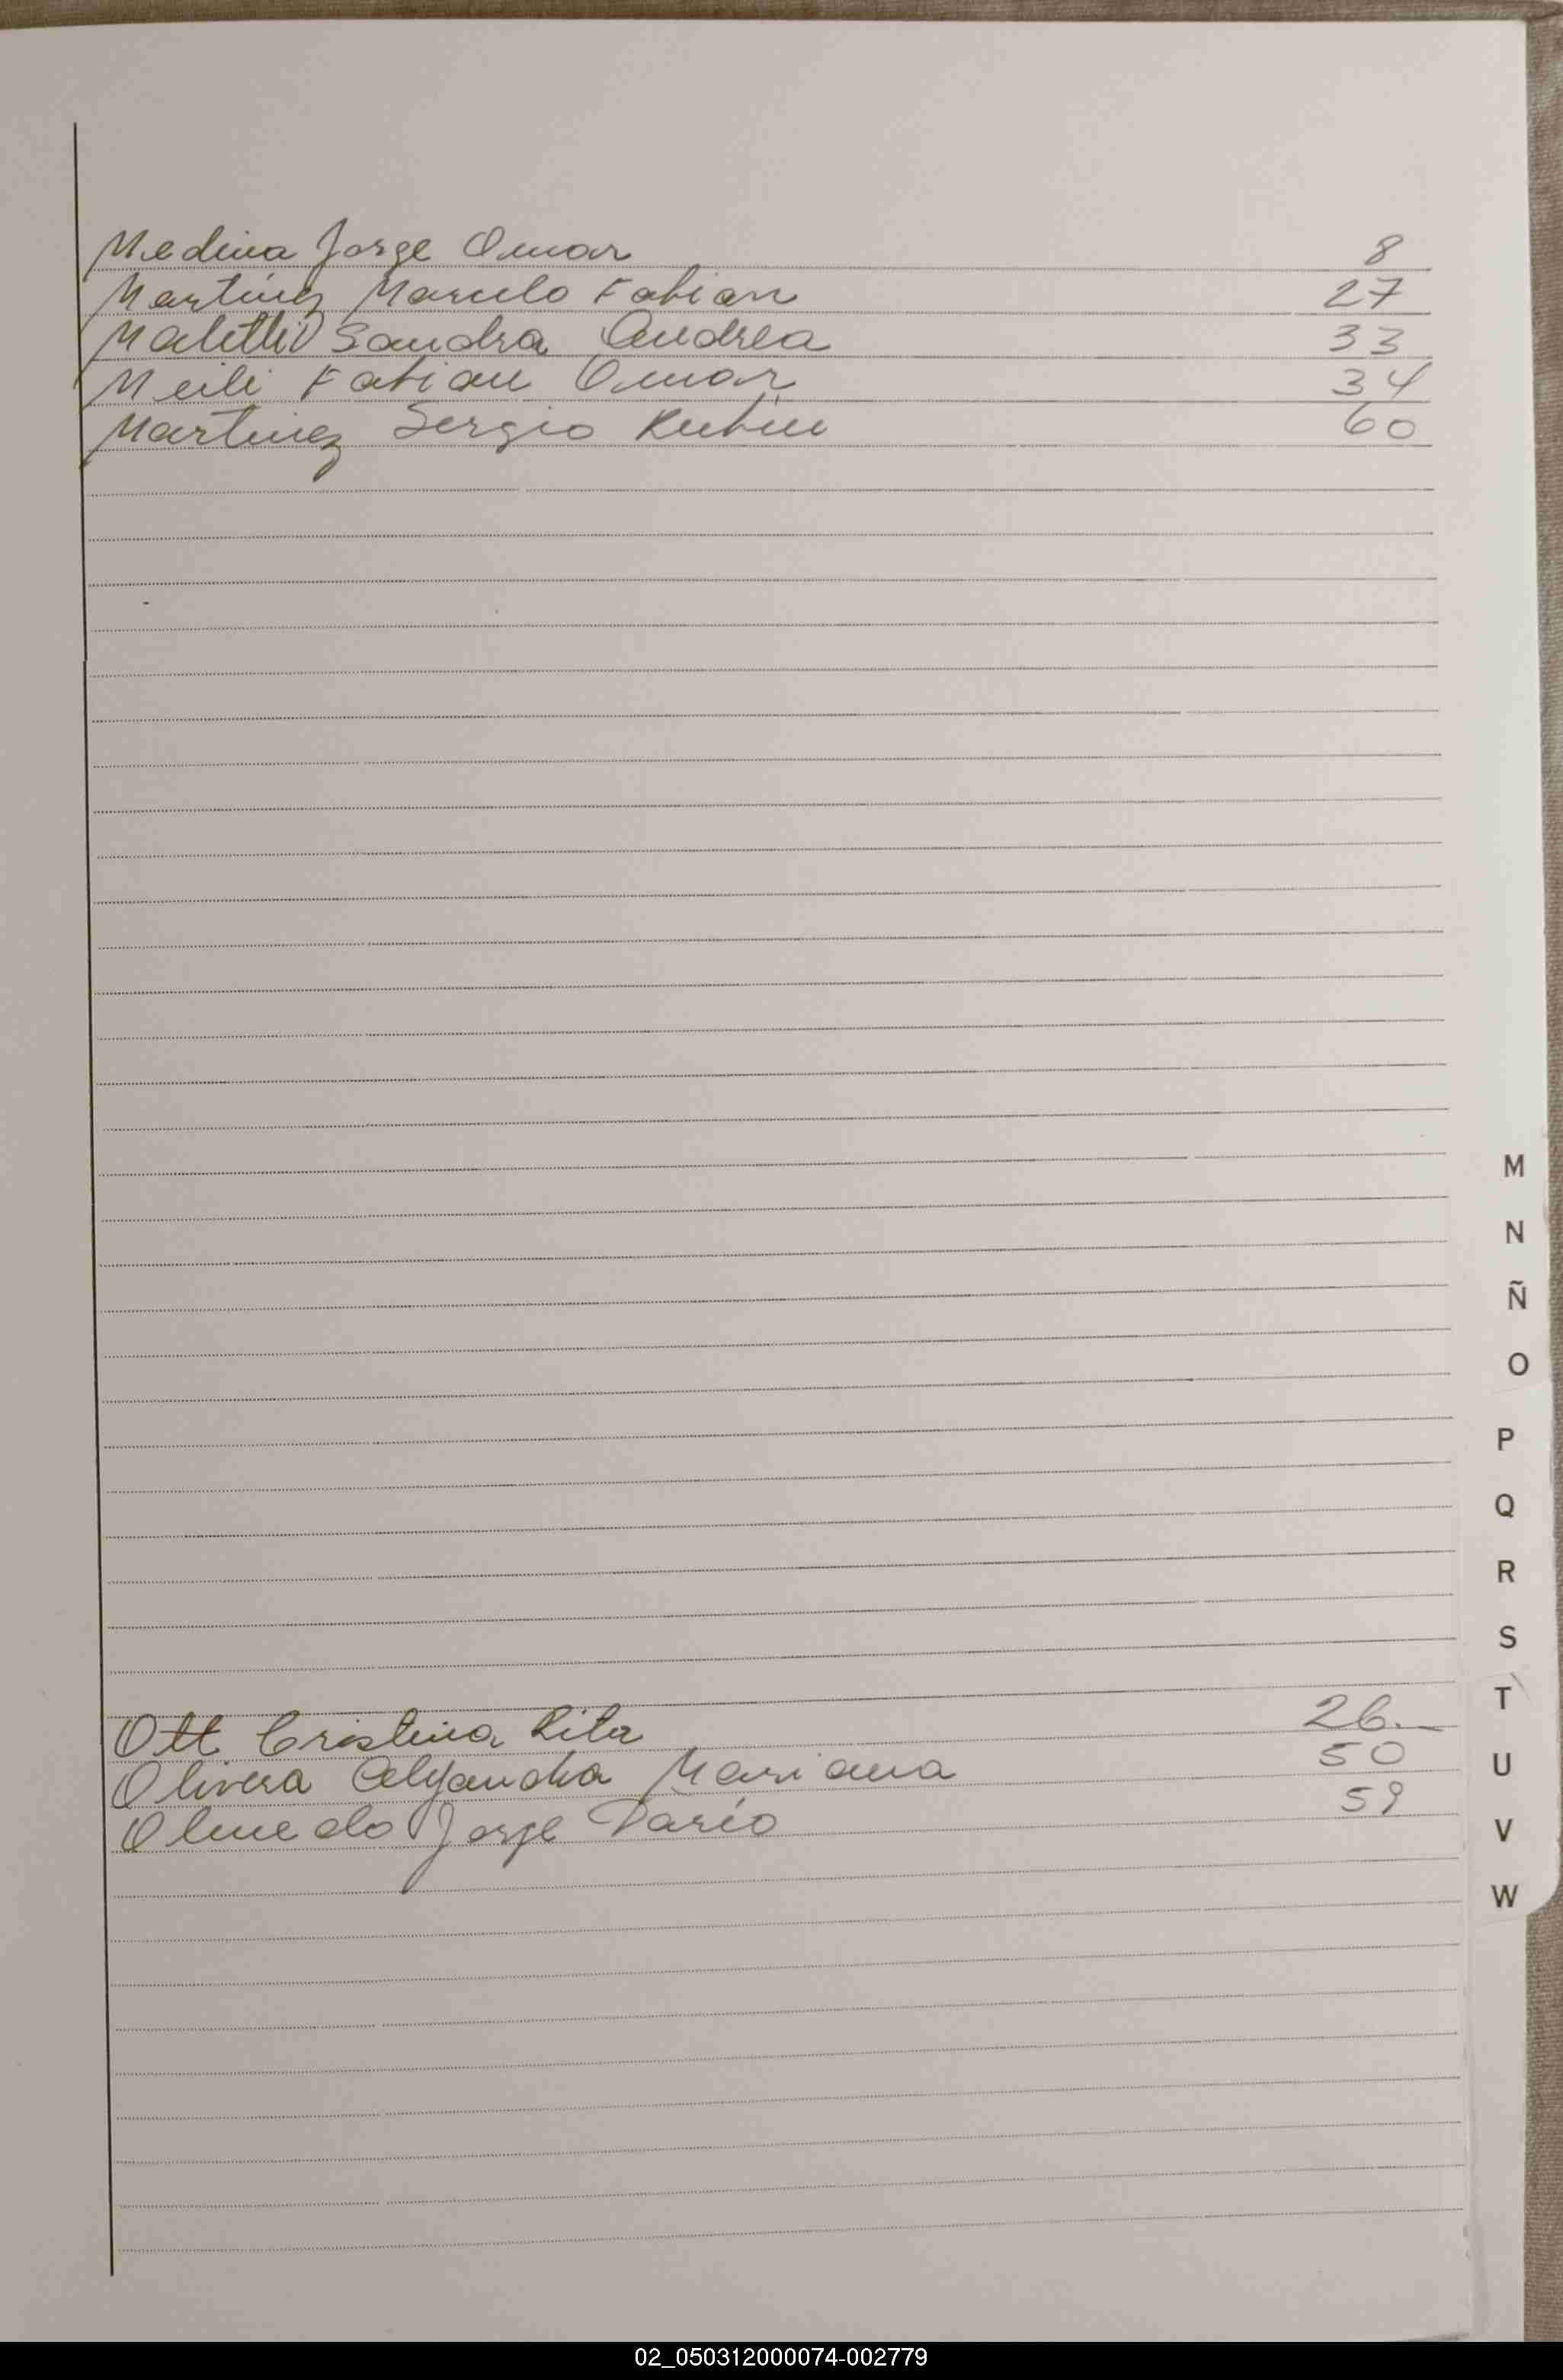 Medina Jorge Omar 8
Martinez Marcelo Fabian 27
Sandra Andrea 33
Meili Fabian Omar 34
Martinez Sergio Rubén 60
M
N
Ñ
O
P
Q
R
S
T
Ott Cristina Rita 26.—
Olivera Alejandra Mariana 50
U
Olmedo Jorge Darío 59
V
W
02_050312000074-002779